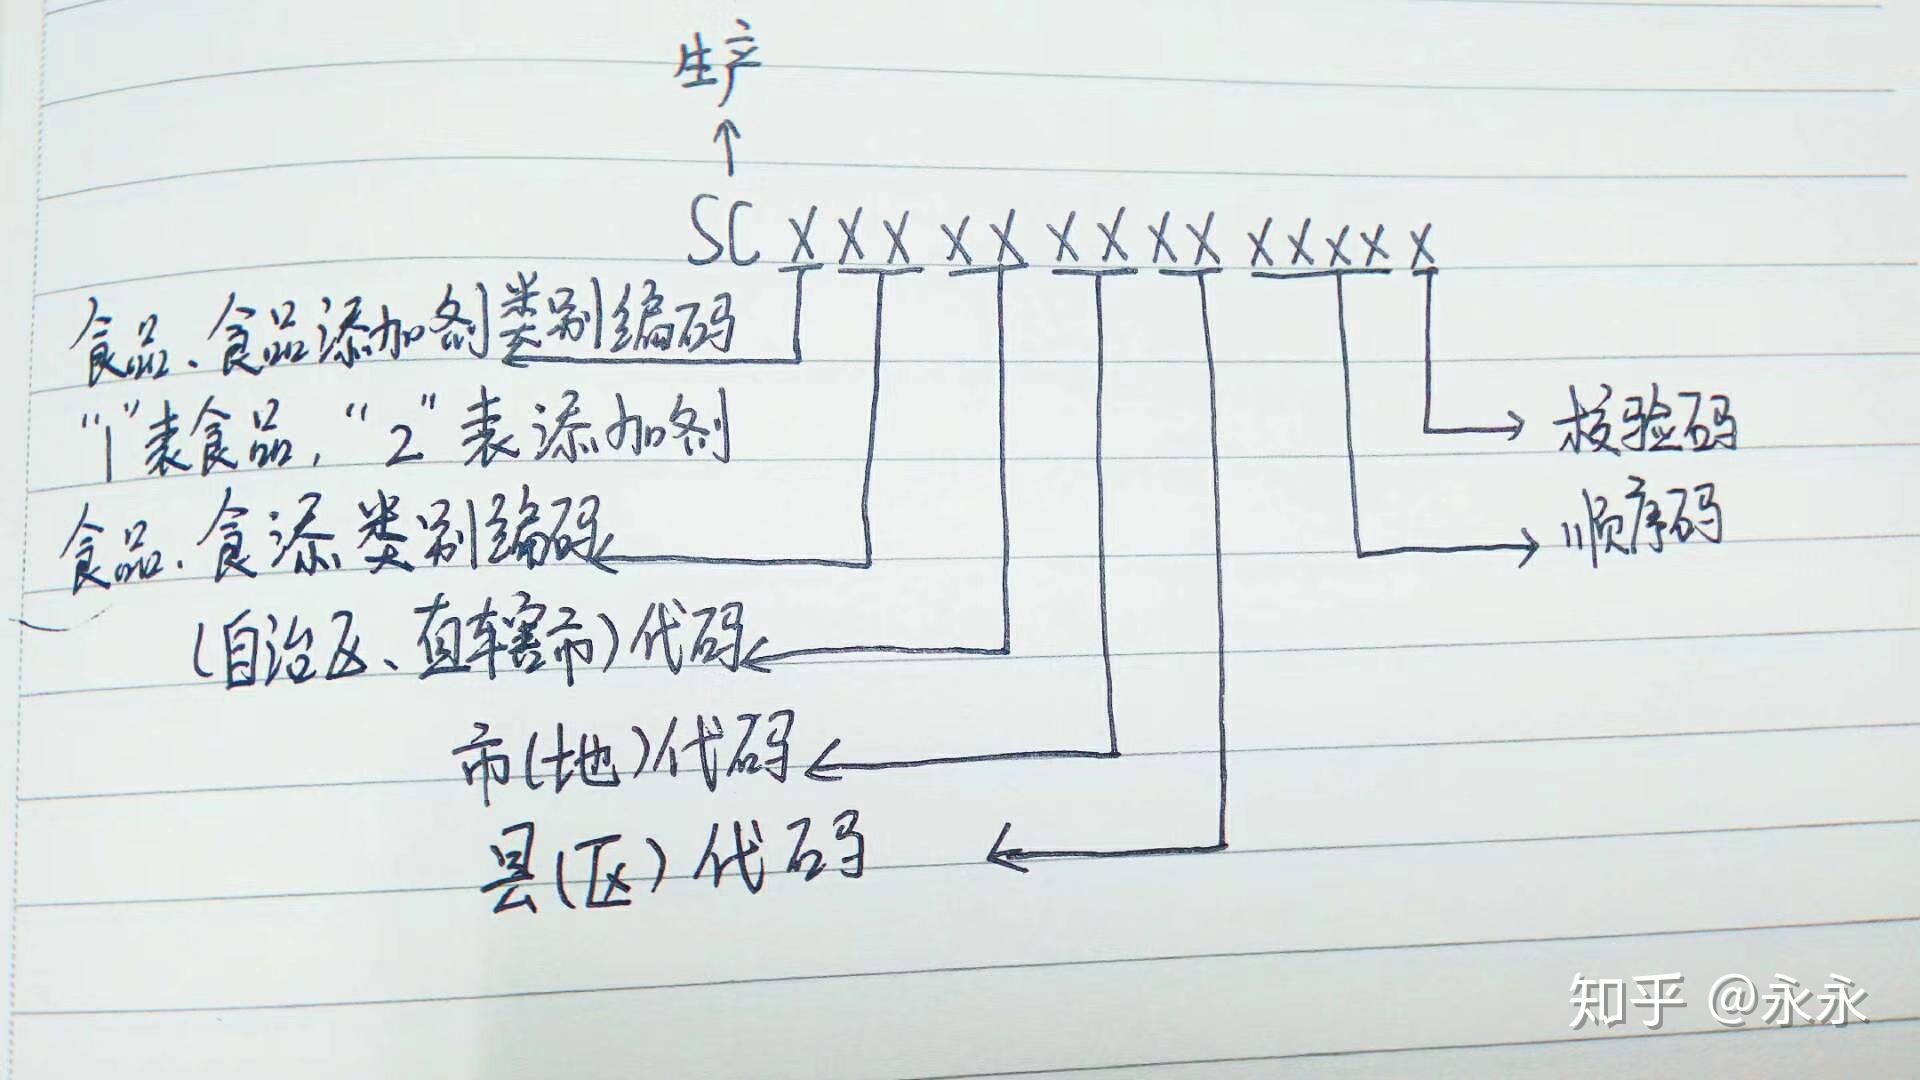 生产
SC X XX XX XX XX XXXX X
食品、食品添加剂类别编码
"1"表食品,"2"表添加剂
校验码
食品、食添类别编码
顺序码
(自治区、直辖市)代码
市(地)代码
县(区)代码
知乎 @永永